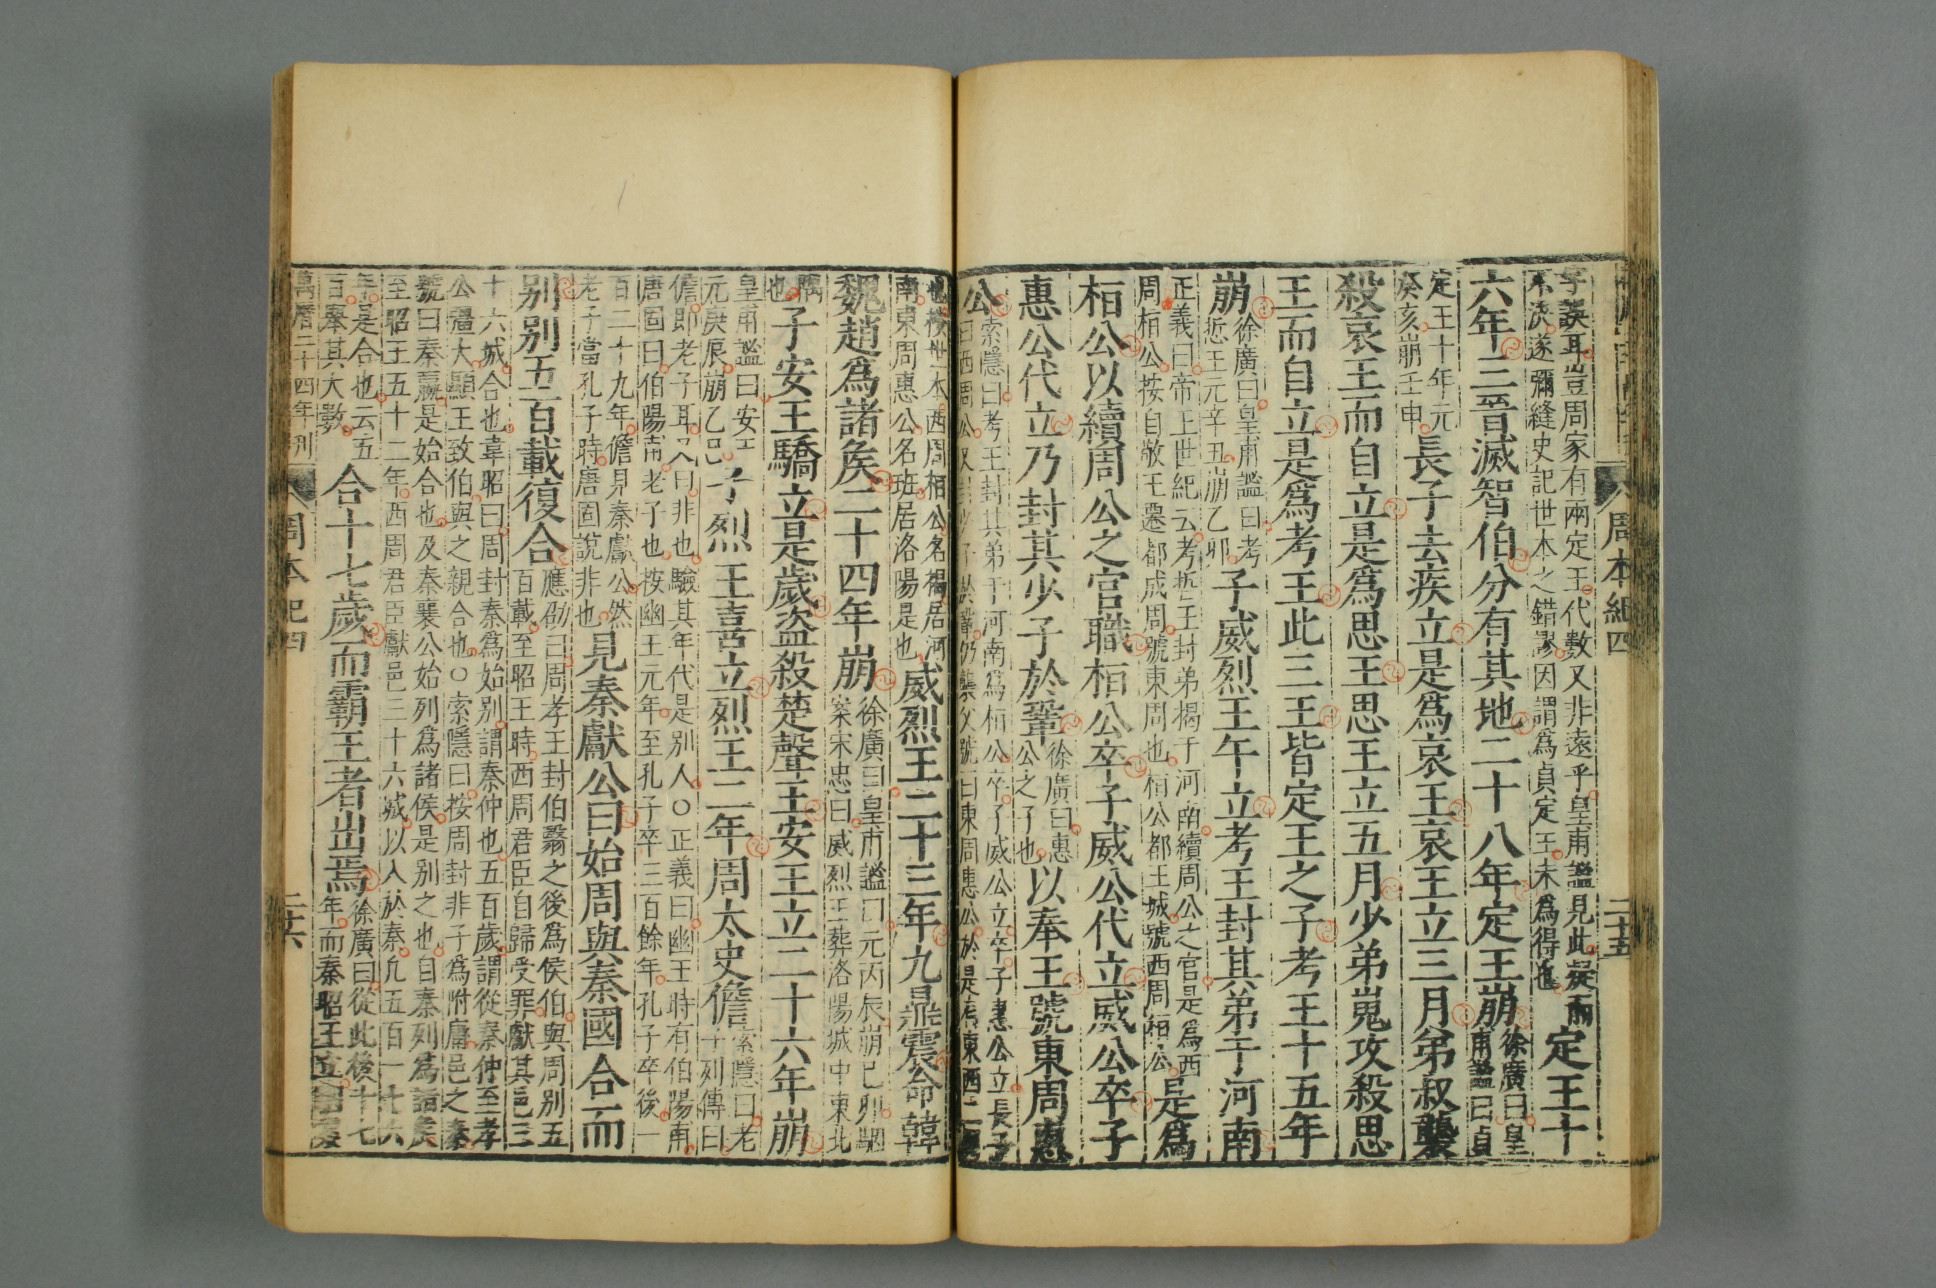 周本紀四 二十五
字誤耳豈周家有兩定王代數又非遠乎皇甫謐見此疑而
不決遂彌縫史記世本之錯謬因謂爲貞定王未爲得也
定王十
六年三晉滅智伯分有其地二十八年定王崩
徐廣曰皇
甫謐曰貞
定王十年元
癸亥崩壬申
長子去疾立是爲哀王哀王立三月弟叔襲
殺哀王而自立是爲思王思王立五月少弟嵬攻殺思
王而自立是爲考王此三王皆定王之子考王十五年
崩
徐廣曰皇甫謐曰考
哲王元辛丑崩乙卯
子威烈王午立考王封其弟于河南
正義曰帝王世紀云考哲王封弟揭于河南續周公之官是爲西
周桓公按自敬王遷都成周號東周也桓公都王城號西周桓公
是爲
桓公以續周公之官職桓公卒子威公代立威公卒子
惠公代立乃封其少子於鞏
徐廣曰惠
公之子也
以奉王號東周惠
公
索隱曰考王封其弟于河南爲桓公卒子威公立卒子惠公立長子
曰西周公又封少子於鞏仍襲父號曰東周惠公於是有東西二周
也按世本西周桓公名揭居河
南東周惠公名班居洛陽是也
威烈王二十三年九鼎震命韓
魏趙爲諸侯二十四年崩
徐廣曰皇甫謐曰元丙辰崩己卯駰
案宋忠曰威烈王葬洛陽城中東北
隅
也
子安王驕立是歲盜殺楚聲王安王立二十六年崩
皇甫謐曰安王
元庚辰崩乙巳
子烈王喜立烈王二年周太史儋
索隱曰老
子列傳曰
儋即老子耳又曰非也驗其年代是別人○正義曰幽王時有伯陽甫
唐固曰伯陽甫老子也按幽王元年至孔子卒三百餘年孔子卒後一
百二十九年儋見秦獻公然
老子當孔子時唐固說非也
見秦獻公曰始周與秦國合而
別別五百載復合
應劭曰周孝王封伯翳之後爲侯伯與周別五
百載至昭王時西周君臣自歸受罪獻其邑三
十六城合也韋昭曰周封秦爲始別謂秦仲也五百歲謂從秦仲至孝
公彊大顯王致伯與之親合也○索隱曰按周封非子爲附庸邑之秦
號曰秦嬴是始合也及秦襄公始列爲諸侯是別之也自秦列爲諸侯
至昭王五十二年西周君臣獻邑三十六城以入於秦凡五百一十六
年是合也云五
百舉其大數
合十七歲而霸王者出焉
徐廣曰從此後十七
年而秦昭王立
萬曆二十四年刊 周本紀四 二十六